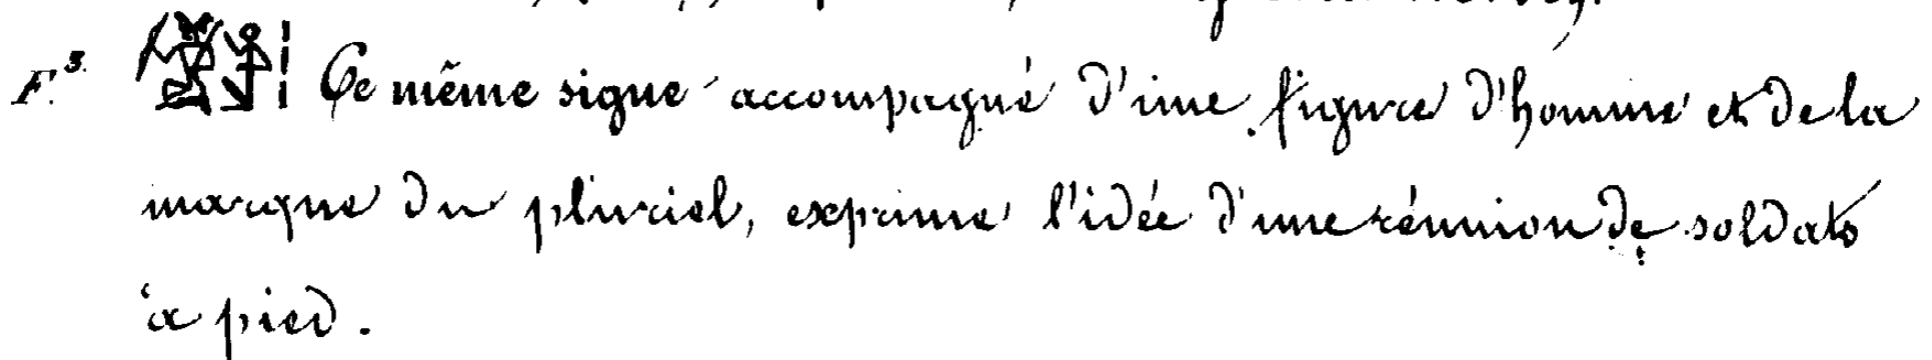 F. 3. Ce même signe accompagné d'une figure d'homme et de la
marque du pluriel, exprime l'idée d'une réunion de soldats
à pied.